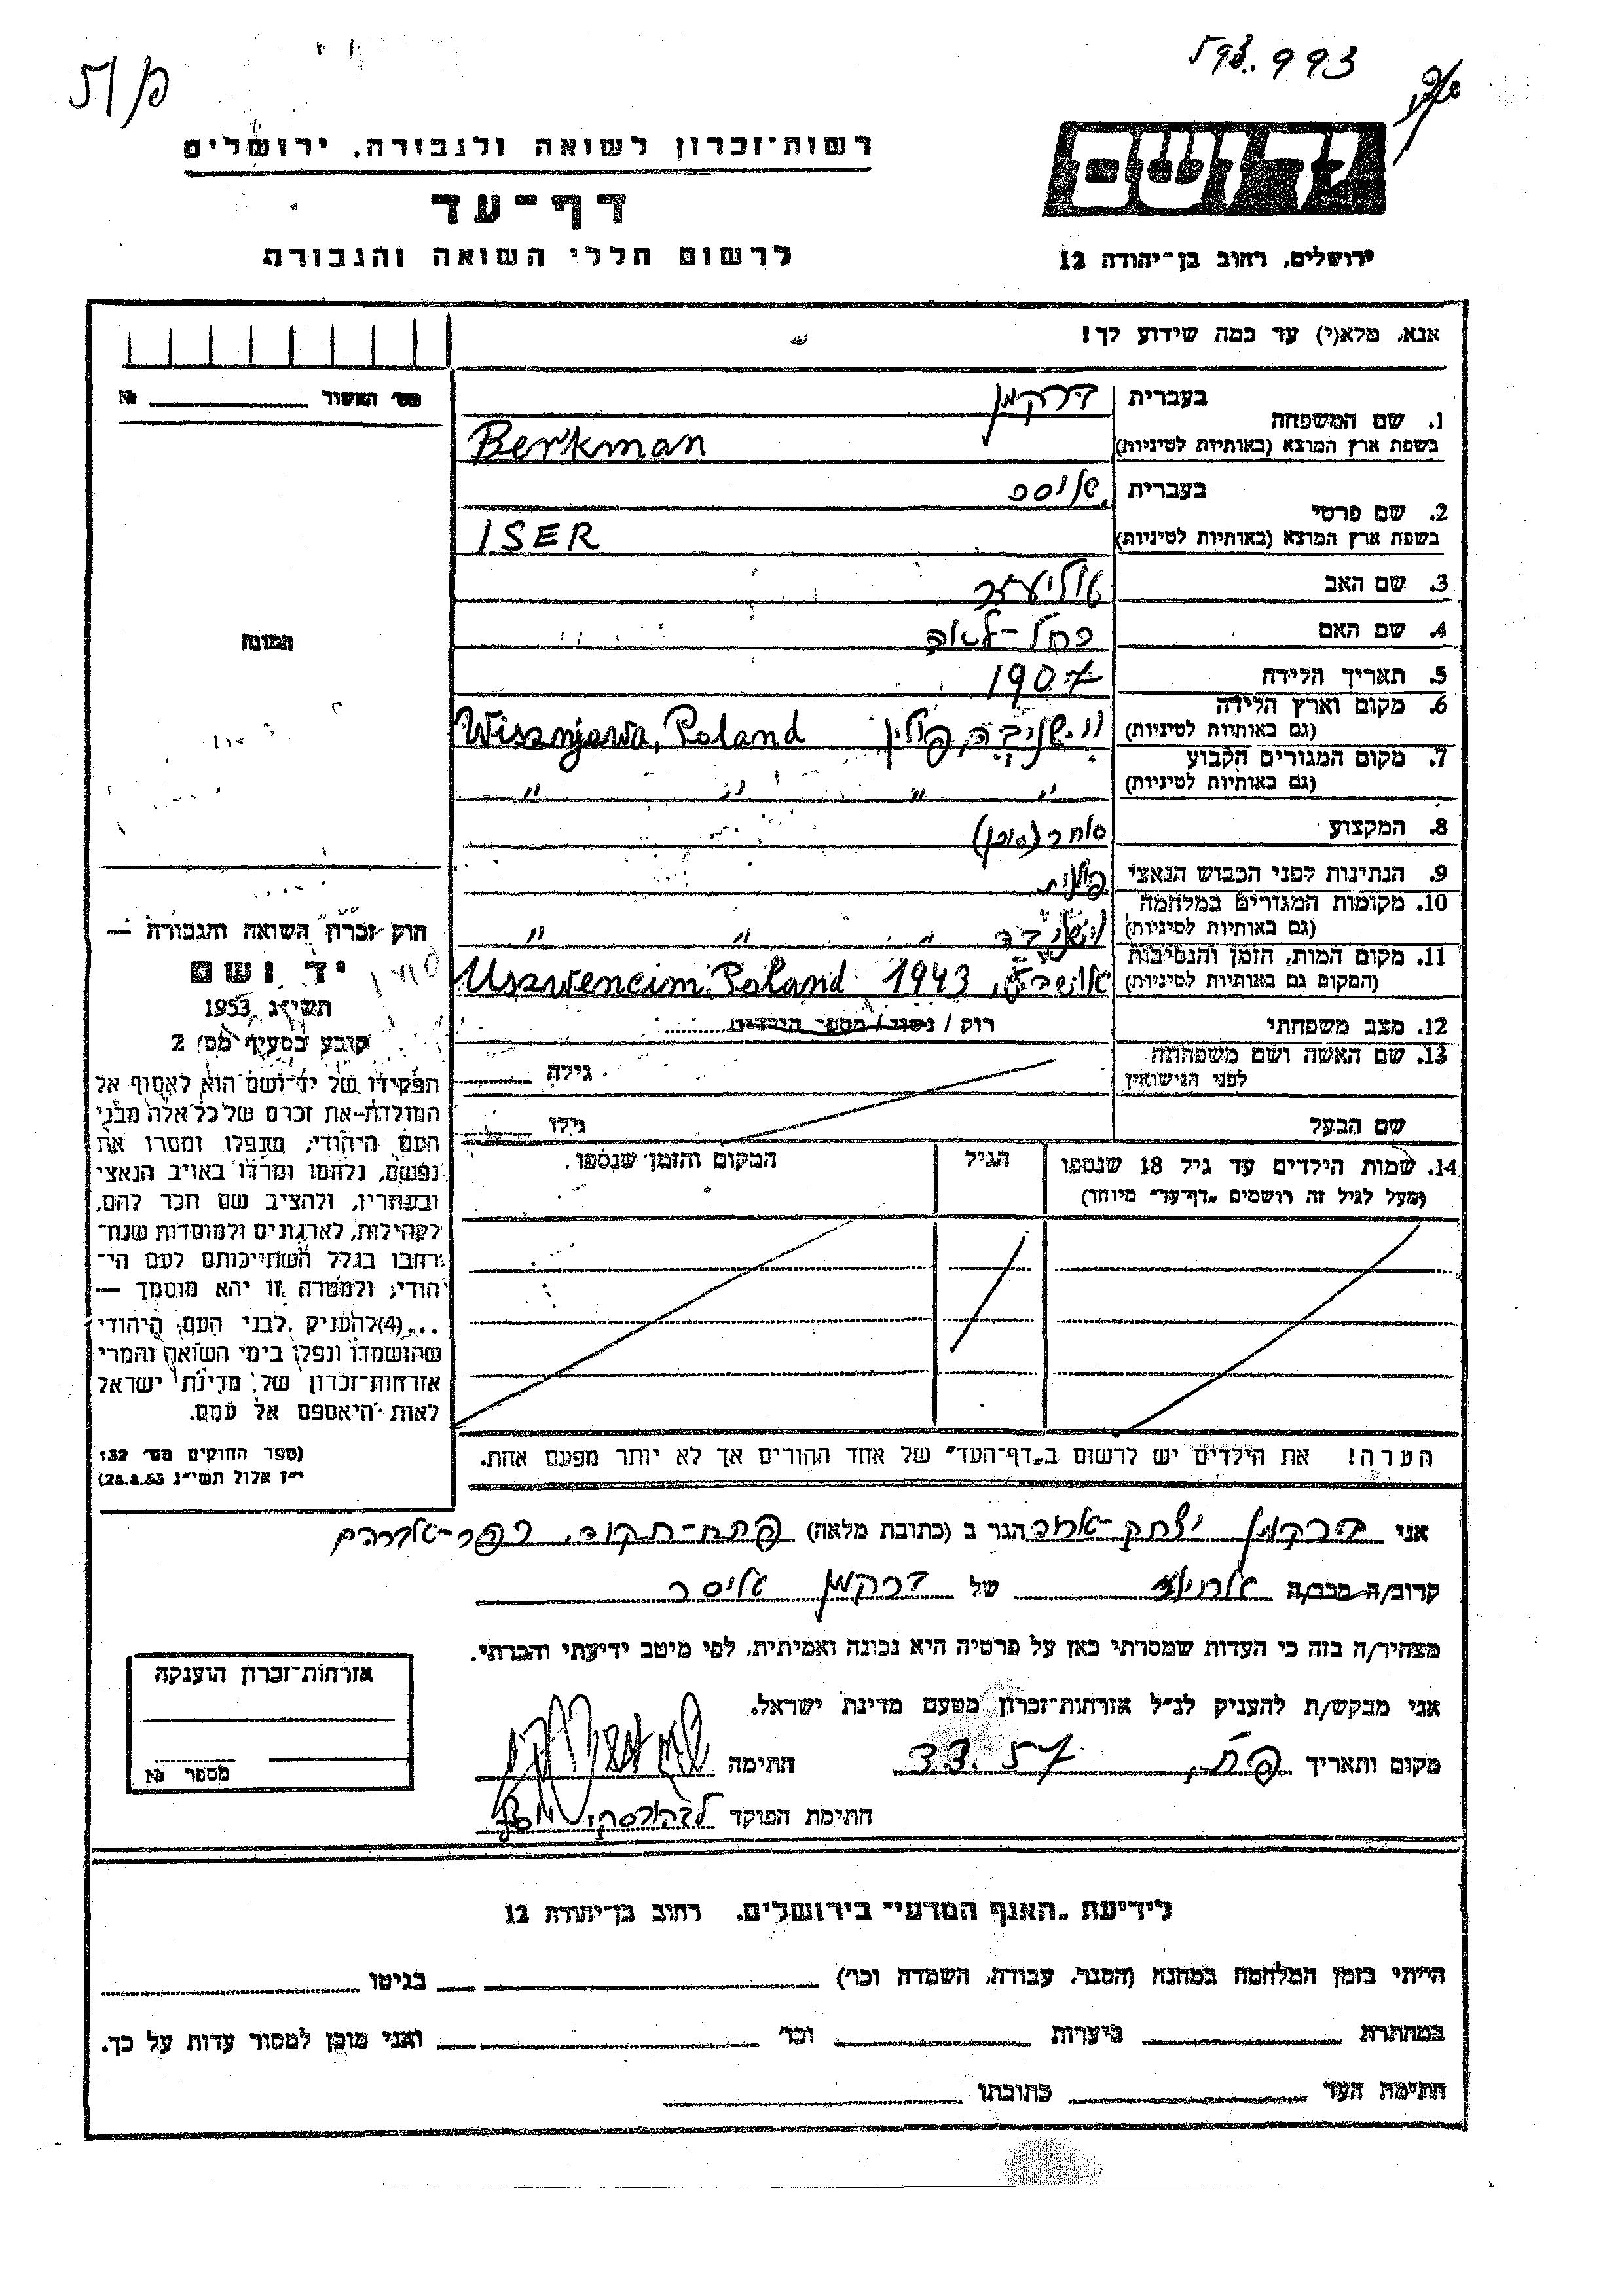 993
רשות־זכרון לשואה ולגבורה, ירושלים
דף־עד
לרשום חללי השואה והגבורה
יד ושם
ירושלים, רחוב בן־יהודה 12
אנא, מלא(י) עד כמה שידוע לך!
מס׳ האשור №
1. שם המשפחה
בעברית ברקמן
בשפת ארץ המוצא (באותיות לטיניות) Berkman
2. שם פרטי
בעברית
בשפת ארץ המוצא (באותיות לטיניות) ISER
3. שם האב אליעזר
4. שם האם רחל-לאה
5. תאריך הלידה 1907
6. מקום וארץ הלידה
(גם באותיות לטיניות) וישניבה, פולין Wisznjawa, Poland
7. מקום המגורים הקבוע
(גם באותיות לטיניות) " " " "
8. המקצוע סוחר (סוכן)
9. הנתינות לפני הכבוש הנאצי פולנית
10. מקומות המגורים במלחמה
(גם באותיות לטיניות) וישניבה " " "
11. מקום המות, הזמן והנסיבות
(המקום גם באותיות לטיניות) אושביץ, 1943 Uszwencim, Poland
12. מצב משפחתי רוק / נשוי / מספר הילדים
13. שם האשה ושם משפחתה
לפני הנישואין גילה
שם הבעל גילו
14. שמות הילדים עד גיל 18 שנספו
(מעל לגיל זה רושמים „דף־עד" מיוחד)
הגיל
המקום והזמן שנספו
הערה! את הילדים יש לרשום ב„דף־העד" של אחד ההורים אך לא יותר מפעם אחת.
תמונה
חוק זכרון השואה והגבורה —
יד ושם
תשי״ג 1953
קובע בסעיף מס׳ 2
תפקידו של יד־ושם הוא לאסוף אל
המולדת את זכרם של כל אלה מבני
העם היהודי, שנפלו ומסרו את
נפשם, נלחמו ומרדו באויב הנאצי
ובעוזריו, ולהציב שם וזכר להם,
לקהילות, לארגונים ולמוסדות שנח־
רבו בגלל השתייכותם לעם הי־
הודי; ולמטרה זו יהא מוסמך —
...(4) להעניק לבני העם היהודי
שהושמדו ונפלו בימי השואה והמרי
אזרחות־זכרון של מדינת ישראל
לאות היאספם אל עמם.
(ספר החוקים מס׳ 132
י״ז אלול תשי״ג 28.8.53)
אני ברקמן יצחק הגר ב (כתובת מלאה) פתח-תקוה, כפר-אברהם
קרוב/ה מכר/ה של ברקמן איסר
מצהיר/ה בזה כי העדות שמסרתי כאן על פרטיה היא נכונה ואמיתית, לפי מיטב ידיעתי והכרתי.
אני מבקש/ת להעניק לנ״ל אזרחות־זכרון מטעם מדינת ישראל.
מקום ותאריך פ״ת, 3.3.57 חתימה
חתימת הפוקד
אזרחות־זכרון הוענקה
מספר №
לידיעת „האגף המדעי" בירושלים, רחוב בן־יהודה 12
הייתי בזמן המלחמה במחנה (הסגר, עבודה, השמדה וכו׳) בגיטו
במחתרת ביערות וכו׳ ואני מוכן למסור עדות על כך.
חתימת העד כתובתו